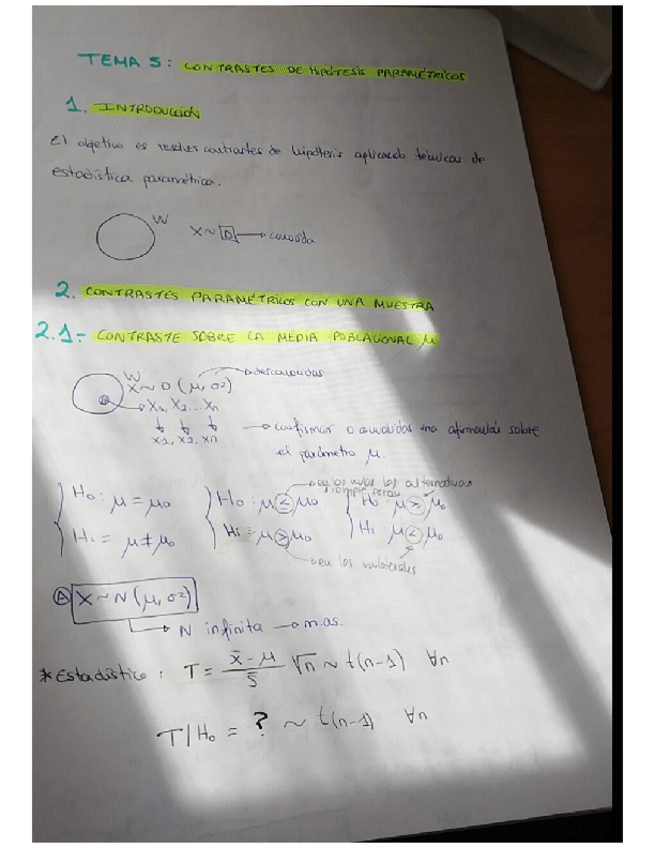 TEMA 5: CONTRASTES DE HIPÓTESIS PARAMÉTRICOS
1. INTRODUCCIÓN
El objetivo es resolver contrastes de hipótesis aplicando técnicas de
estadística paramétrica.
W
X ~ D → conocida
2. CONTRASTES PARAMÉTRICOS CON UNA MUESTRA
2.1- CONTRASTE SOBRE LA MEDIA POBLACIONAL μ
W
X ~ D (μ, σ²) → desconocidas
X1, X2 ... Xn
x1, x2, xn
→ confirmar o una afirmación sobre
el parámetro μ.
→ en las nulas las alternativas
siempre
H0: μ = μ0 H0: μ ≤ μ0 H0: μ ≥ μ0
H1 = μ ≠ μ0 H1: μ > μ0 H1: μ < μ0
→ en las unilaterales
A X ~ N (μ, σ²)
→ N infinita → m.a.s.
* Estadístico: T = x̄ - μ / S √n ~ t(n-1) ∀n
T/H0 = ? ~ t(n-1) ∀n